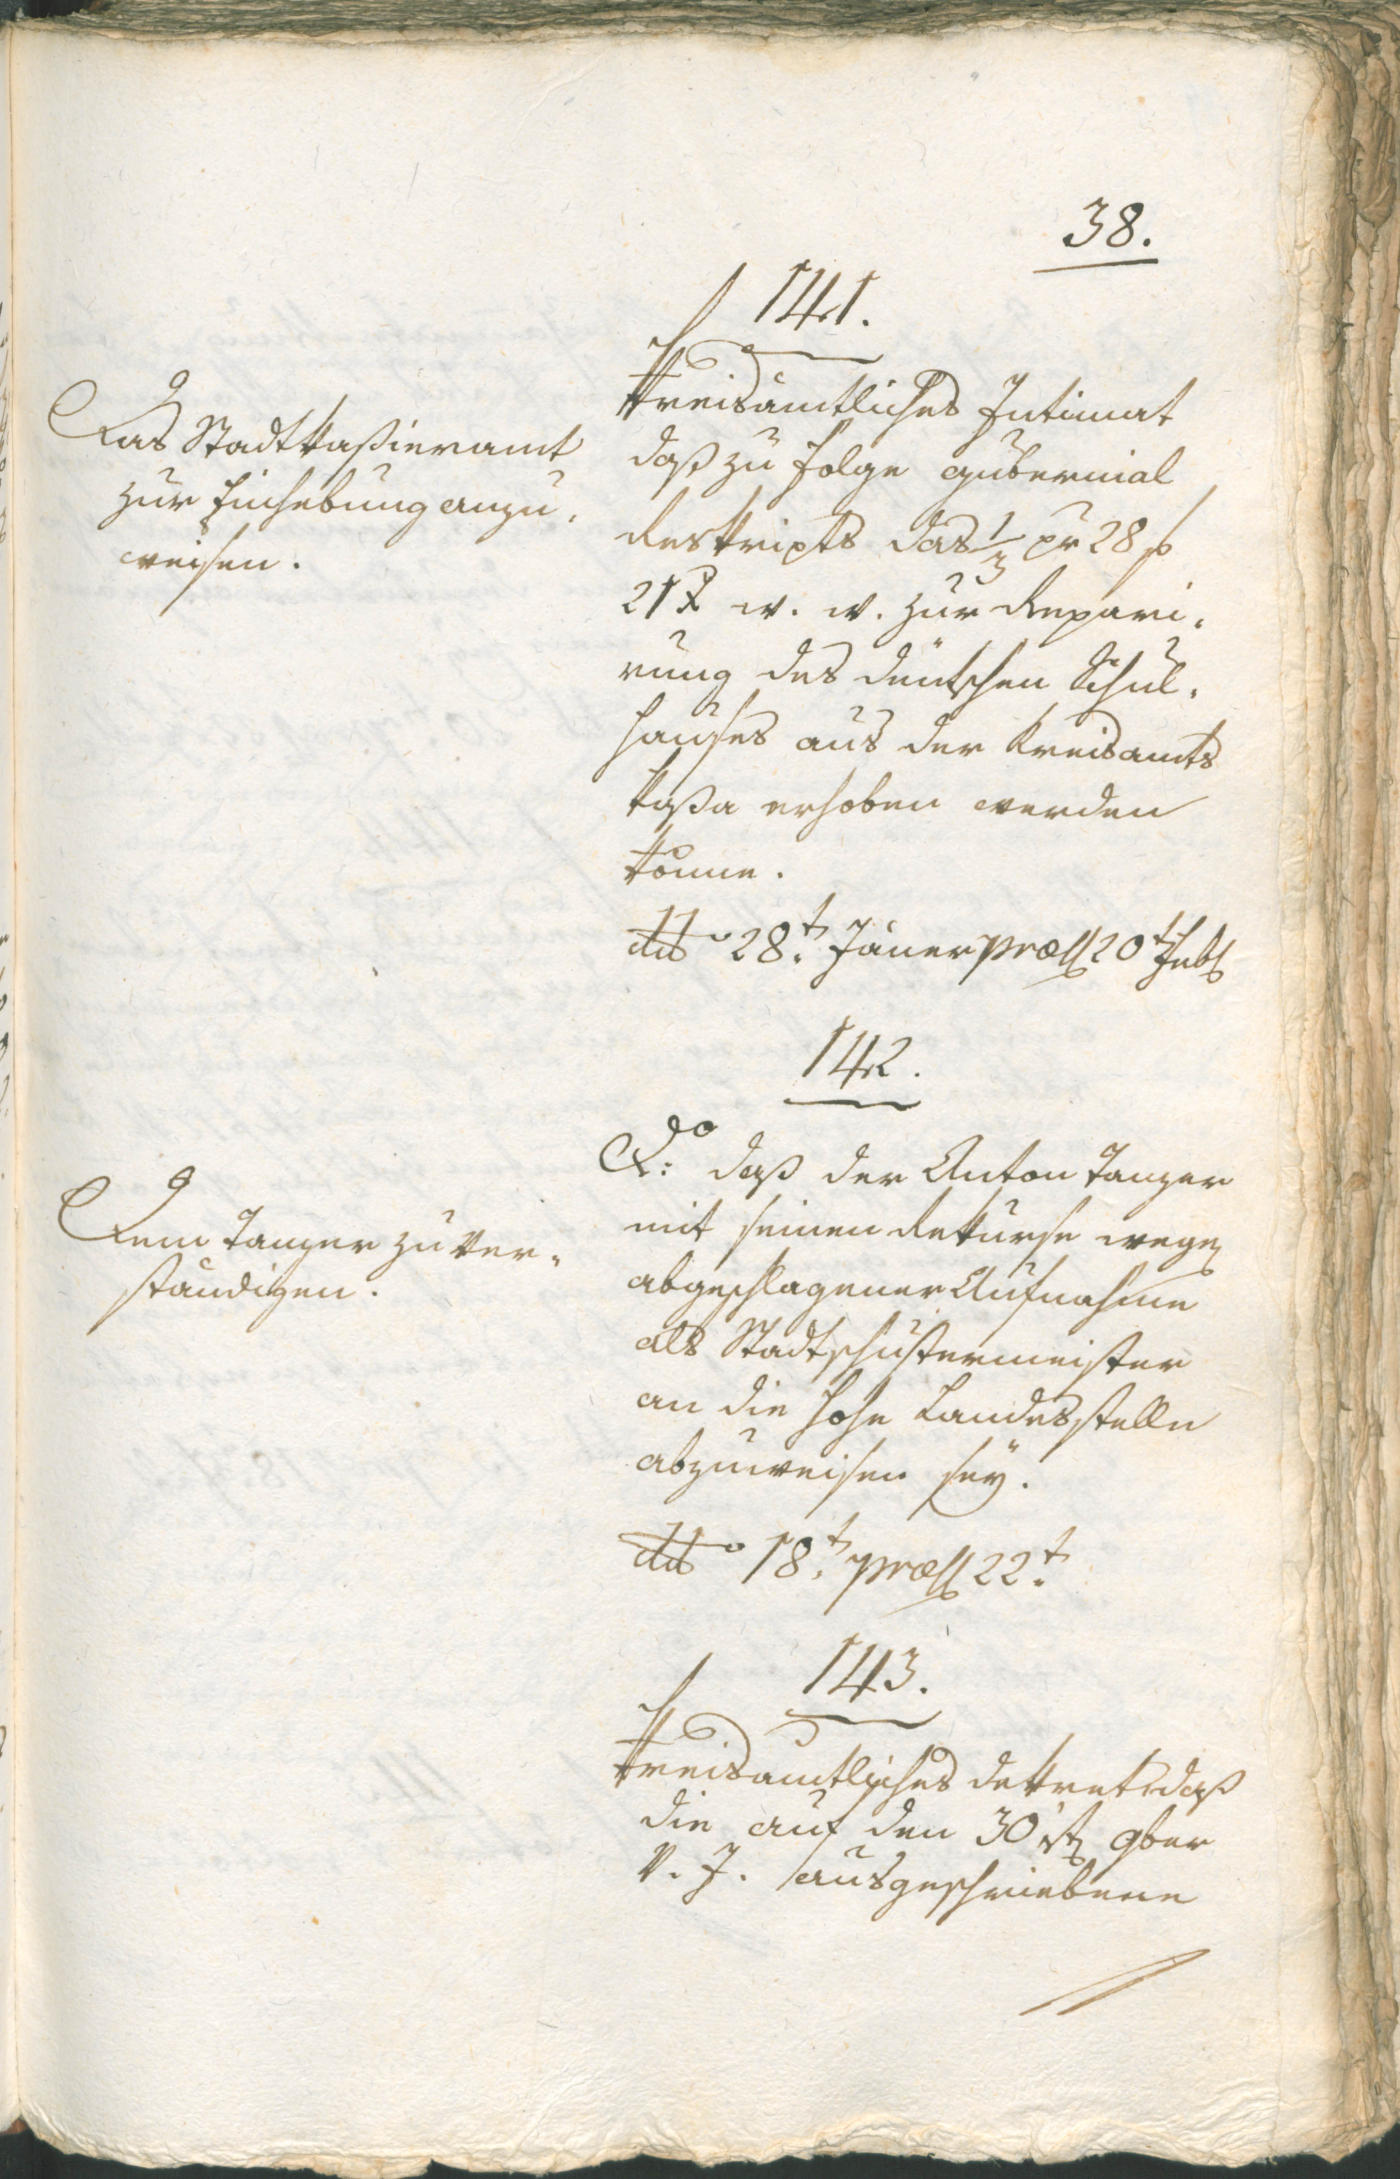 38.
141.
Kreisämtliches Intimat
daß zu folge gubernial
Reskripts das 1/3 pr 28 f
21 x w. w. zur Repari„
rung des deutschen Schul„
hauses aus der Kreisamts
kaßa erhoben werden
könne.
dtto 28t. Jäner præs 20t Feb
Das Stadtkaßieramt
zur Einhebung anzu„
weisen.
142.
Do: daß der Anton Tanzer
mit seinen Rekurse wegen
abgeschlagener Aufnahme
als Stadtschustermeister
an die hohe Landesstelle
abzuweisen seÿ.
dtto 18t. præs 22t.
Dem Tanzer zu ver„
ständigen.
143.
Kreisamtliches Dekret daß
die auf den 30st 9ber
v. J. ausgeschriebene